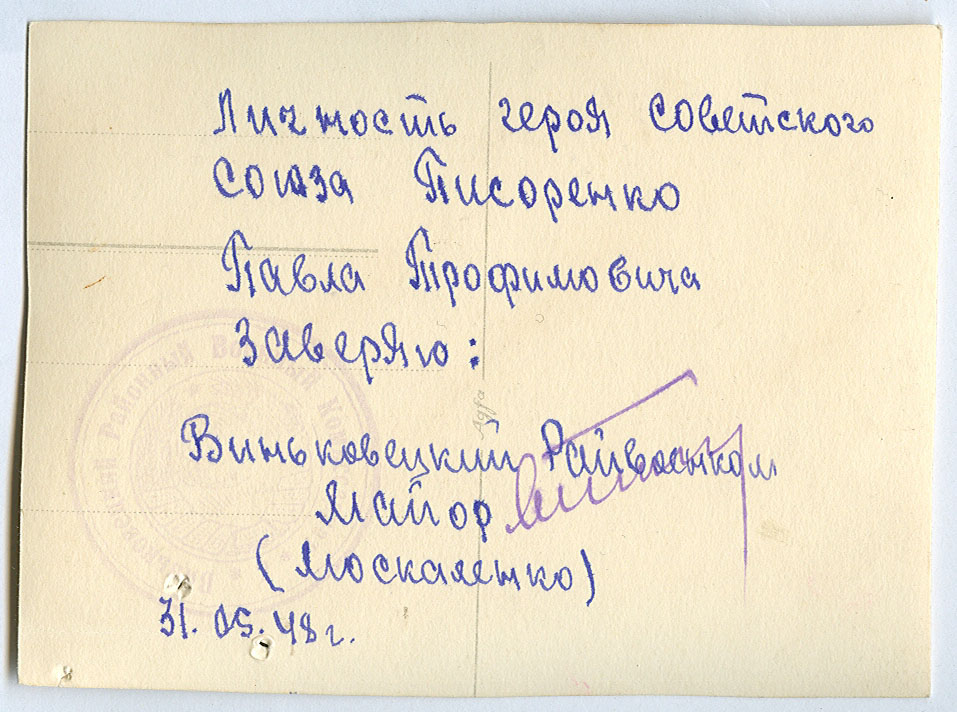 Личность героя советского
союза Писоренко
Павла Трофимовича
заверяю:
Виньковецкий Райвоенком
майор
(Москаленко)
31.05.48 г.
Agfa
Виньковецкий Районный Военный Ком